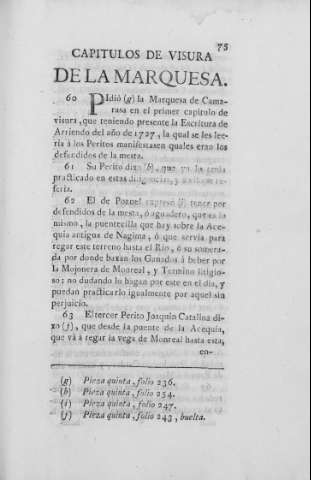 75
CAPITULOS DE VISURA
DE LA MARQUESA.
60 PIdiò (g) la Marquesa de Cama-
rasa en el primer capitulo de
visura, que teniendo presente la Escritura de
Arriendo del año de 1727, la qual se les lee-
ria à los Peritos manifestasen quales eran los
defendidos de la mesta.
61 Su Perito dixo (h), que ya lo tenia
practicado en estas diligencias, y
62 El de Pozuel expresò (i) tener por
defendidos de la mesta, ò aguadero, que es lo
mismo, la puentecilla que hay sobre la Ace-
quia antigua de Nagima, ò que servia para
regar este terreno hasta el Rio, ò su somera-
da por donde baxan los Ganados à beber por
la Mojonera de Monreal, y Termino litigio-
so; no dudando lo hagan por este en el dia, y
puedan practicarlo igualmente por aquel sin
perjuicio.
63 El tercer Perito Joaquin Catalina di-
xo (j), que desde la puente de la Acequia,
que và à regar la vega de Monreal hasta esta,
en-
(g) Pieza quinta, folio 236.
(h) Pieza quinta, folio 254.
(i) Pieza quinta, folio 247.
(j) Pieza quinta, folio 243, buelta.